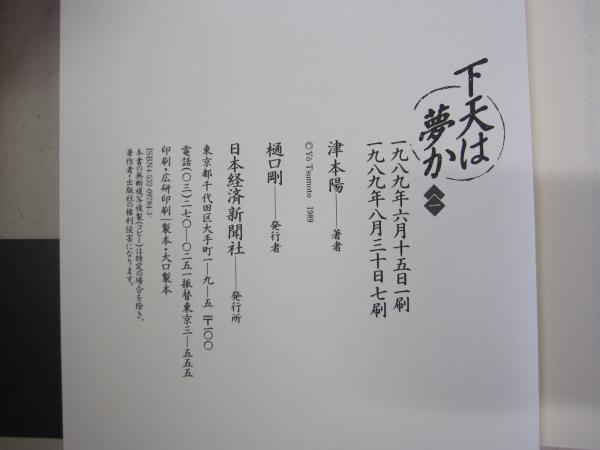 下天は
夢か 一
一九八九年六月十五日一刷
一九八九年八月三十日七刷
津本陽——著者
© Yō Tsumoto 1989
樋口剛——発行者
日本経済新聞社——発行所
東京都千代田区大手町一—九—五 〒一〇〇
電話(〇三)二七〇—〇二五一 振替東京三—五五五
印刷・広研印刷｜製本・大口製本
ISBN4-532-09784-3
本書の無断複写複製(コピー)は特定の場合を除き、
著作者・出版社の権利侵害になります。